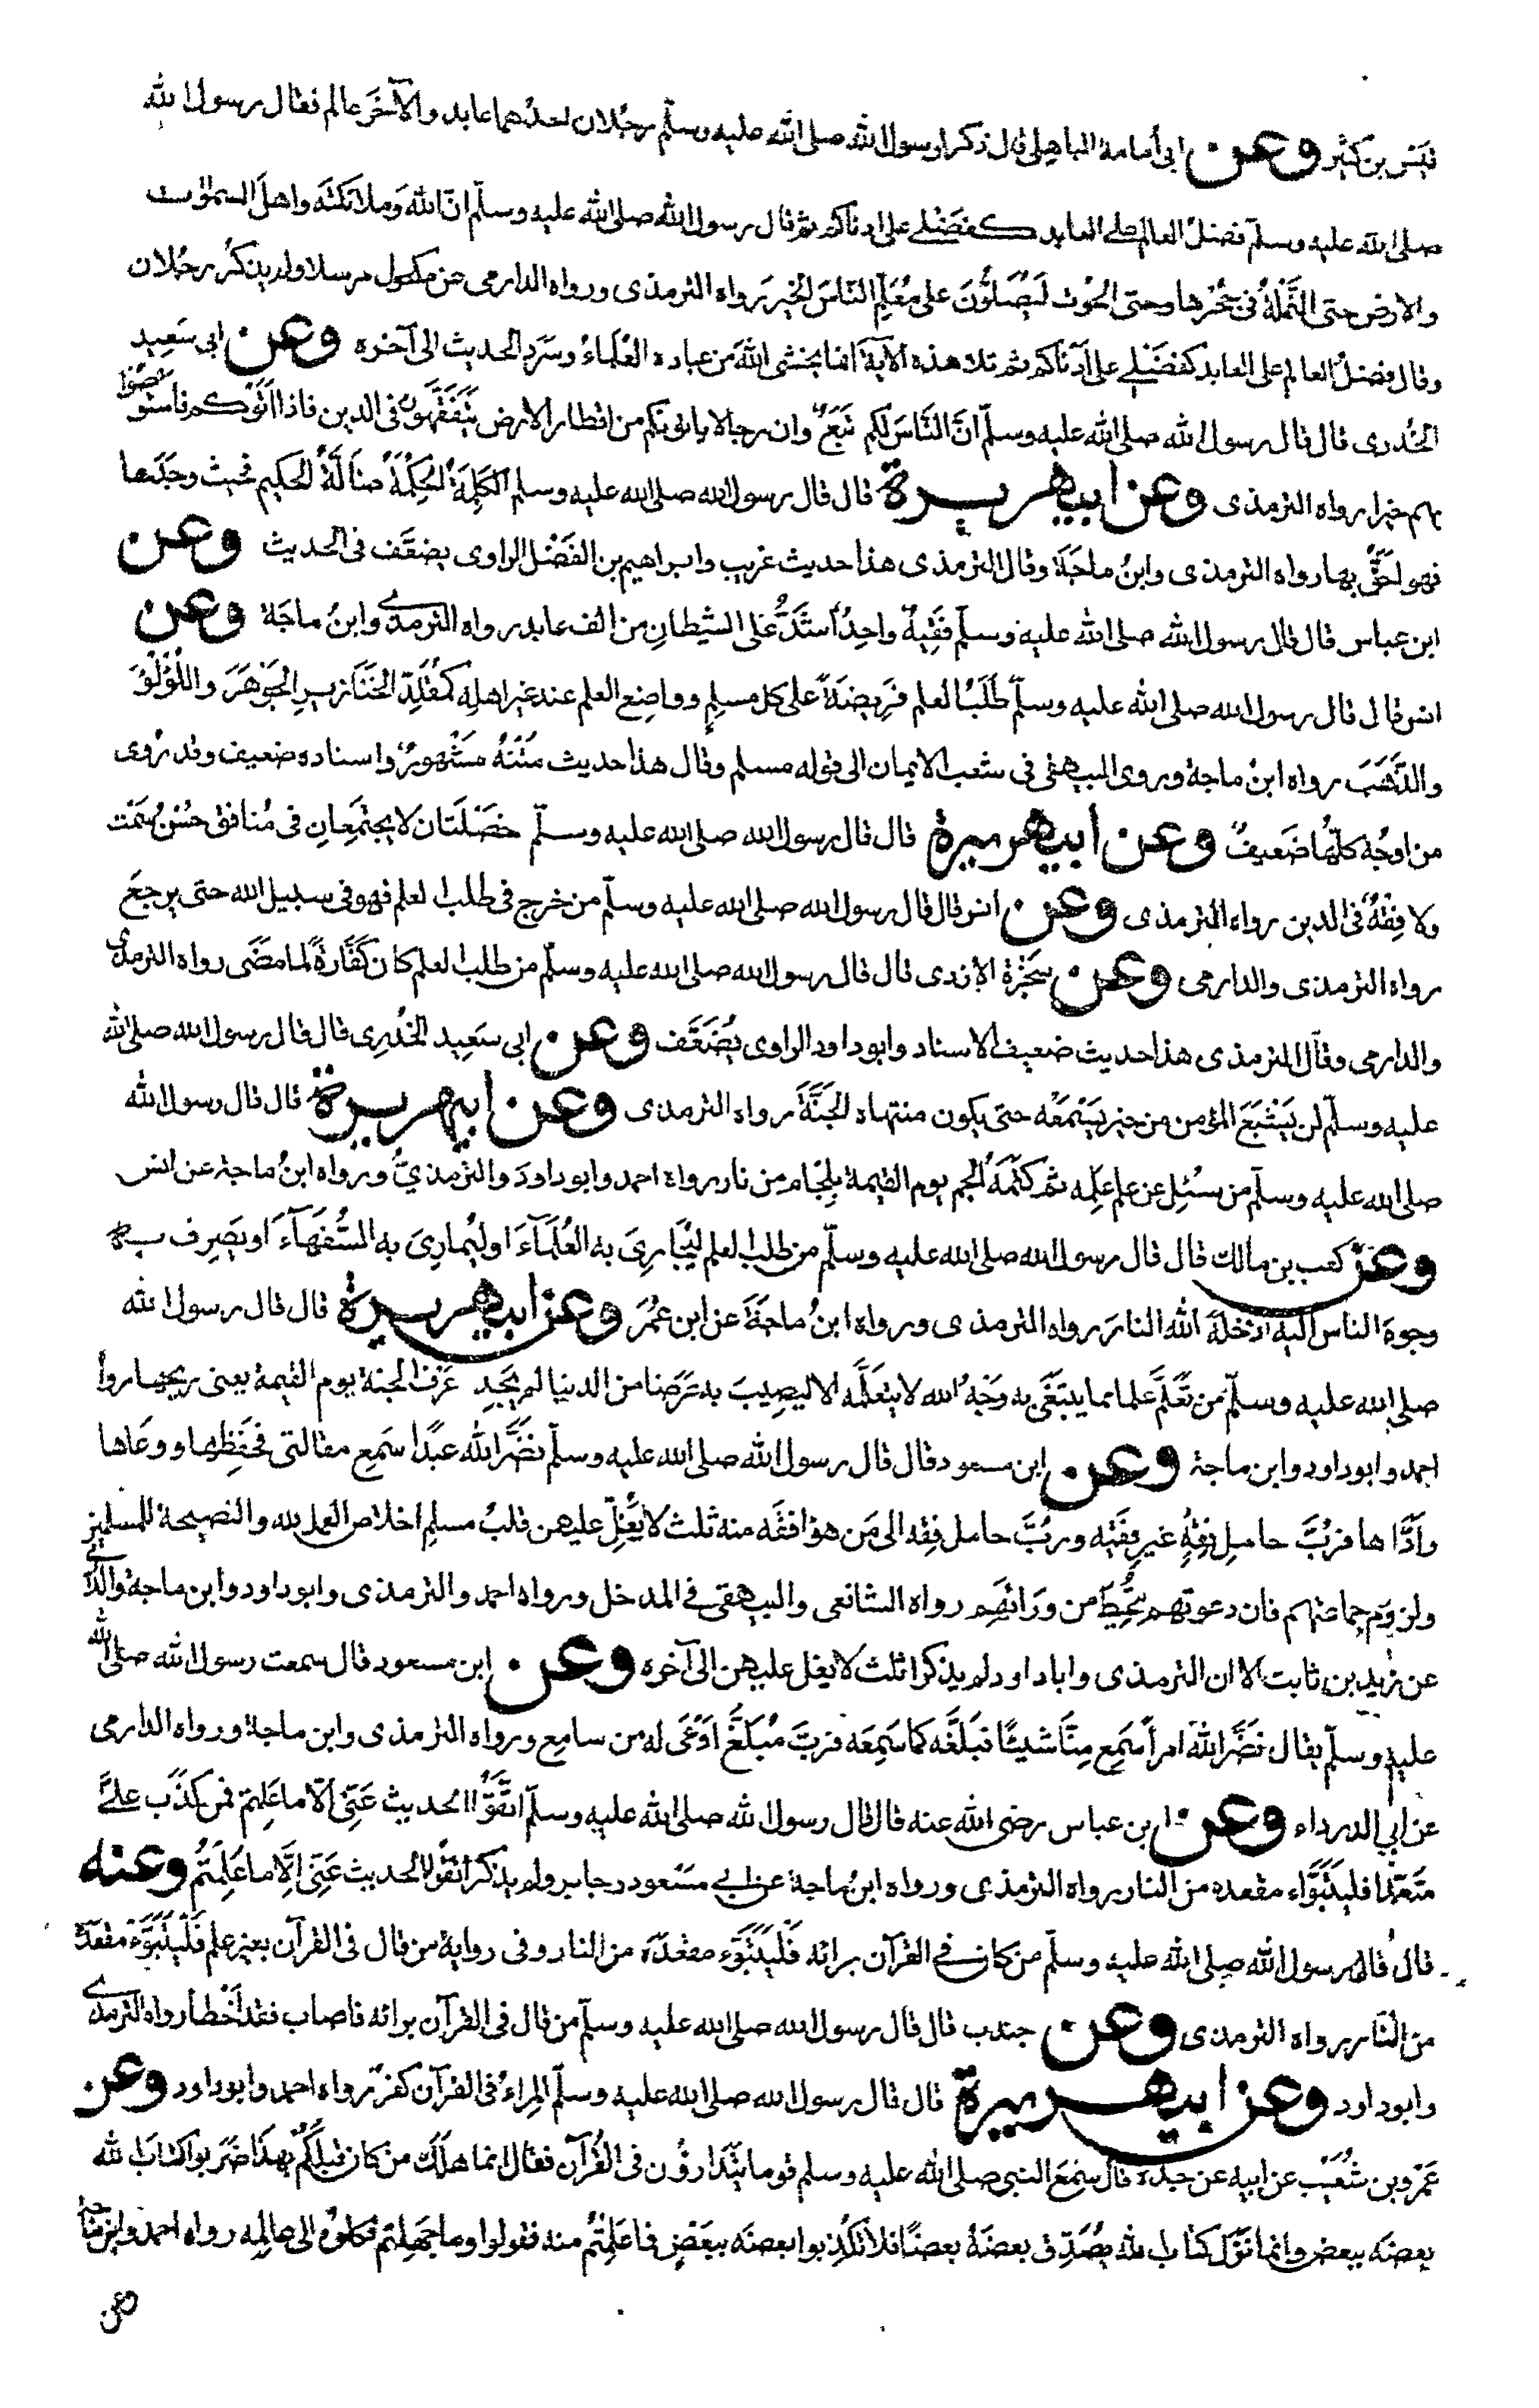 قيس بن كثير وعن ابي أمامة الباهلي قال ذكر لرسول الله صلى الله عليه وسلّم رجُلان احدُهما عابد والآخَر عالم فقال رسول الله
صلى الله عليه وسلّم فضلُ العالم على العابد كفضْلے على ادناكم ثم قال رسول الله صلى الله عليه وسلّم انّ الله وملائكتَه واهلَ السمٰوات
والارض حتى النَّملةُ فى جُحْرها وحتى الحُوْت لَيُصَلُّوْنَ على مُعَلِّم الناسَ الخيرَ رواه الترمذى ورواه الدارمى عن مكحول مرسلا ولم يذكُر رجُلان
وقال فضلُ العالم على العابد كفضْلے على اَدْناكم ثم تلا هذه الآيةَ انما يخشى اللهَ من عباده العُلماءُ وسَرَدِ الحديث الى آخره وعن ابى سَعِيد
الخُدرى قال قال رسول الله صلى الله عليه وسلّم انَّ النَّاسَ لكم تَبَعٌ وان رجالا ياتونكم من اقطار الارض يَتَفَقَّهون فى الدين فاذا اَتَوْكم فاستَوْصُوْا
بهم خيرا رواه الترمذى وعن ابيهريرة قال قال رسول الله صلى الله عليه وسلم الكَلِمَةُ الحِكْمَةُ ضالَّةُ الحكيم فحيث وجَدَها
فهو احَقُّ بها رواه الترمذى وابنُ ماجَةَ وقال الترمذى هذا حديث غريب وابراهيم بن الفَضْل الراوى يضعَّف فى الحديث وعن
ابن عباس قال قال رسول الله صلى الله عليه وسلّم فَقِيْهٌ واحِدٌ اَشَدُّ على الشيطانِ من الف عابد رواه الترمذے وابنُ ماجَة وعن
انس قال قال رسول الله صلى الله عليه وسلّم طَلَبُ العلم فَرِيضَةٌ على كل مسلمٍ وواضِع العلم عند غيرِ اهلِه كمُقَلِّدِ الخَنَازيرِ الجَوْهَرَ واللُؤْلُؤَ
والذَّهَبَ رواه ابنُ ماجة وروى البيهقى فى شعب الايمان الى قوله مسلم وقال هذا حديث مَتْنُهُ مَشْهورٌ واسناده ضعيف وقد رُوى
من اوجُه كلّها ضَعِيفٌ وعن ابيهريرة قال قال رسول الله صلى الله عليه وسلّم خَصْلَتَان لا يجتَمِعَانِ فى مُنافق حُسْنُ سَمْت
ولا فِقْهٌ فى الدين رواه الترمذى وعن انس قال قال رسول الله صلى الله عليه وسلّم من خرج فى طلب العلم فهو فى سبيل الله حتى يرجعَ
رواه الترمذى والدارمى وعن سَخْبَرة الازدى قال قال رسول الله صلى الله عليه وسلّم من طلب العلم كان كَفّارةً لما مضَى رواه الترمذى
والدارمى وقال الترمذى هذا حديث ضعيف الاسناد وابو داود الراوى يُضَعَّف وعن ابى سَعِيد الخُدرِى قال قال رسول الله صلى الله
عليه وسلّم لن يَشْبَعَ المؤمن من خير يَسْمَعُه حتى يكون منتهاه الجَنَّةُ رواه الترمذى وعن ابيهريرة قال قال رسول الله
صلى الله عليه وسلّم من سُئِل عن علم عَلِمَه ثم كَتَمَهُ اُلجم يوم القيمة بِلِجَام من نار رواه احمد وابو داودَ والترمذيُّ ورواه ابنُ ماجة عن انس
وعن كعب بن مالك قال قال رسول الله صلى الله عليه وسلّم من طلب العلم ليُجَارِىَ به العُلَمَآءَ او ليُمارِىَ به السُّفَهَآءَ او يَصرِف به
وجوهَ الناس اليه ادخلَهُ الله النارَ رواه الترمذى ورواه ابنُ ماجَةَ عن ابن عُمَرَ وعن ابيهريرة قال قال رسول الله
صلى الله عليه وسلّم من تَعَلَّمَ علما مما يبتَغَى به وجْهُ الله لا يتعَلَّمُه الا ليصِيبَ به عَرَضا من الدنيا لم يجِد عَرْفَ الجنة يوم القيمة يعنى ريحها رواه
احمد وابو داود وابن ماجة وعن ابن مسعود قال قال رسول الله صلى الله عليه وسلّم نضَّر الله عبدًا سَمِع مقالتى فحَفِظها ووعَاها
واَدَّاها فرُبَّ حامل فِقْهٍ غيرِ فِقيْه ورُبَّ حاملِ فِقه الى مَن هو افقَه منه ثلث لا يُغِلّ عليهن قلبُ مسلمٍ اخلاص العمل لله والنصيحة للمسلمين
ولزومِ جماعتهم فان دعوتهم تحِيْطُ من ورَائِهَم رواه الشافعى والبيهقى فے المدخل ورواه احمد والترمذى وابو داود وابن ماجة والدارمے
عن زيد بن ثابت الا ان الترمذى وابا داود لم يذكرا ثلث لا يغل عليهن الى آخره وعن ابن مسعود قال سمعت رسول الله صلى الله
عليه وسلّم يقال نضَّرَ اللهُ امرأً سَمِع مِنّا شيئًا فبَلَّغَه كما سَمِعَه فربَّ مُبَلَّغٍ اَوْعَى له من سامِع ورواه الترمذى وابن ماجة ورواه الدارمى
عن ابي الدرداء وعن ابن عباس رضى الله عنه قال قال رسول الله صلى الله عليه وسلّم اتَّقُوا الحديث عَنّى الّا ما عَلِمتم فمن كذَب علىَّ
متعَمّدا فليتبَوَّاء مقعده من النار رواه الترمذى ورواه ابنُ ماجة عن ابے مسْعود وجابر ولم يذكر اتقُوا الحديثَ عَنّى اِلَّا ما عَلِمْتُم وعنه
قال قال رسول الله صلى الله عليه وسلّم من قال فے القرآن برائه فَلْيَتَبَوَّء مقعَدَه من النار وفى رواية من قال فى القرآن بغير علم فَلْيَتَبَوَّء مقعَدَه
من النَّار رواه الترمذى وعن جندب قال قال رسول الله صلى الله عليه وسلّم من قال فى القرآن برائه فاصاب فقد اَخْطأ رواه الترمذے
وابو داود وعن ابيهريرة قال قال رسول الله صلى الله عليه وسلّم المِراءُ فى القرآن كفرٌ رواه احمد وابو داود وعن
عَمْرو بن شُعَيْب عن ابيه عن جده قال سَمِعَ النبى صلى الله عليه وسلم قوما يتَدارؤن فى القُرآن فقال انما هلَك من كان قبلَكُم بهذا ضَرَبوا كتابَ الله
بعضَه ببعض وانما نزَل كتاب الله يصَدِّق بعضُهُ بعضًا فلا تُكَذِّبوا بعضَه ببَعْضٍ فما عَلِمْتُم منه فقولوا وما جَهِلتم فكِلوْه الى عالِمِه رواه احمد وابن ماجة
وعن